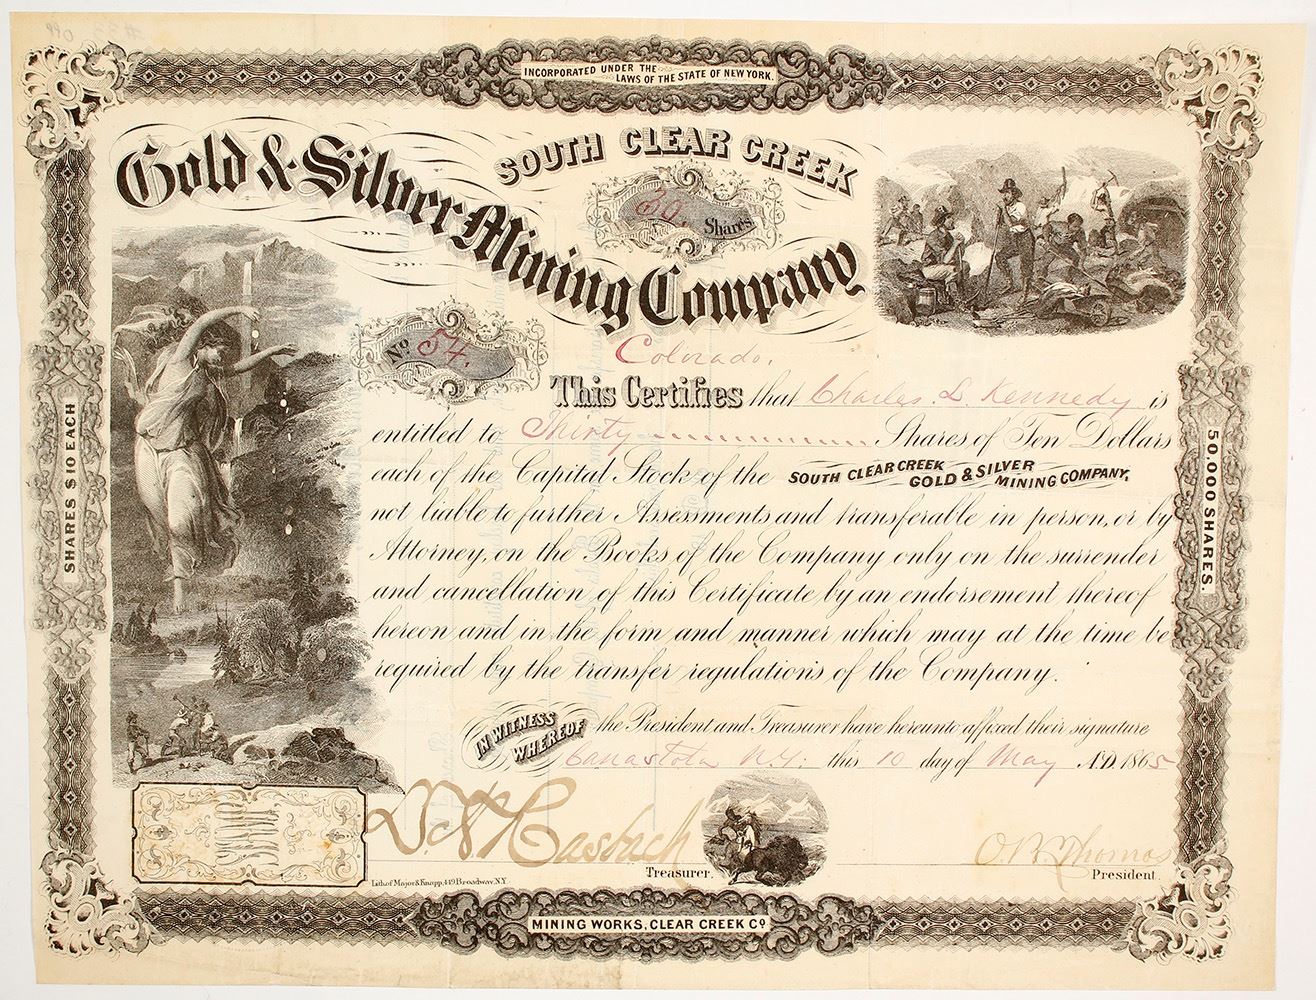 INCORPORATED UNDER THE
LAWS OF THE STATE OF NEW YORK.
SOUTH CLEAR CREEK
Gold & Silver Mining Company
30 Shares
No. 54.
Colorado.
This Certifies that Charles. L. Kennedy is
entitled to Thirty Shares of Ten Dollars
each of the Capital Stock of the SOUTH CLEAR CREEK GOLD & SILVER MINING COMPANY,
not liable to further Assessments and transferable in person, or by
Attorney, on the Books of the Company only on the surrender
and cancellation of this Certificate by an endorsement thereof
hereon and in the form and manner which may at the time be
required by the transfer regulations of the Company.
IN WITNESS WHEREOF the President and Treasurer have hereunto affixed their signature
Canastota N.Y. this 10 day of May A.D. 1865
Treasurer.
Thomas
President.
Lith. of Major & Knapp, 449 Broadway, N.Y.
MINING WORKS, CLEAR CREEK CO.
SHARES $10 EACH
50,000 SHARES.